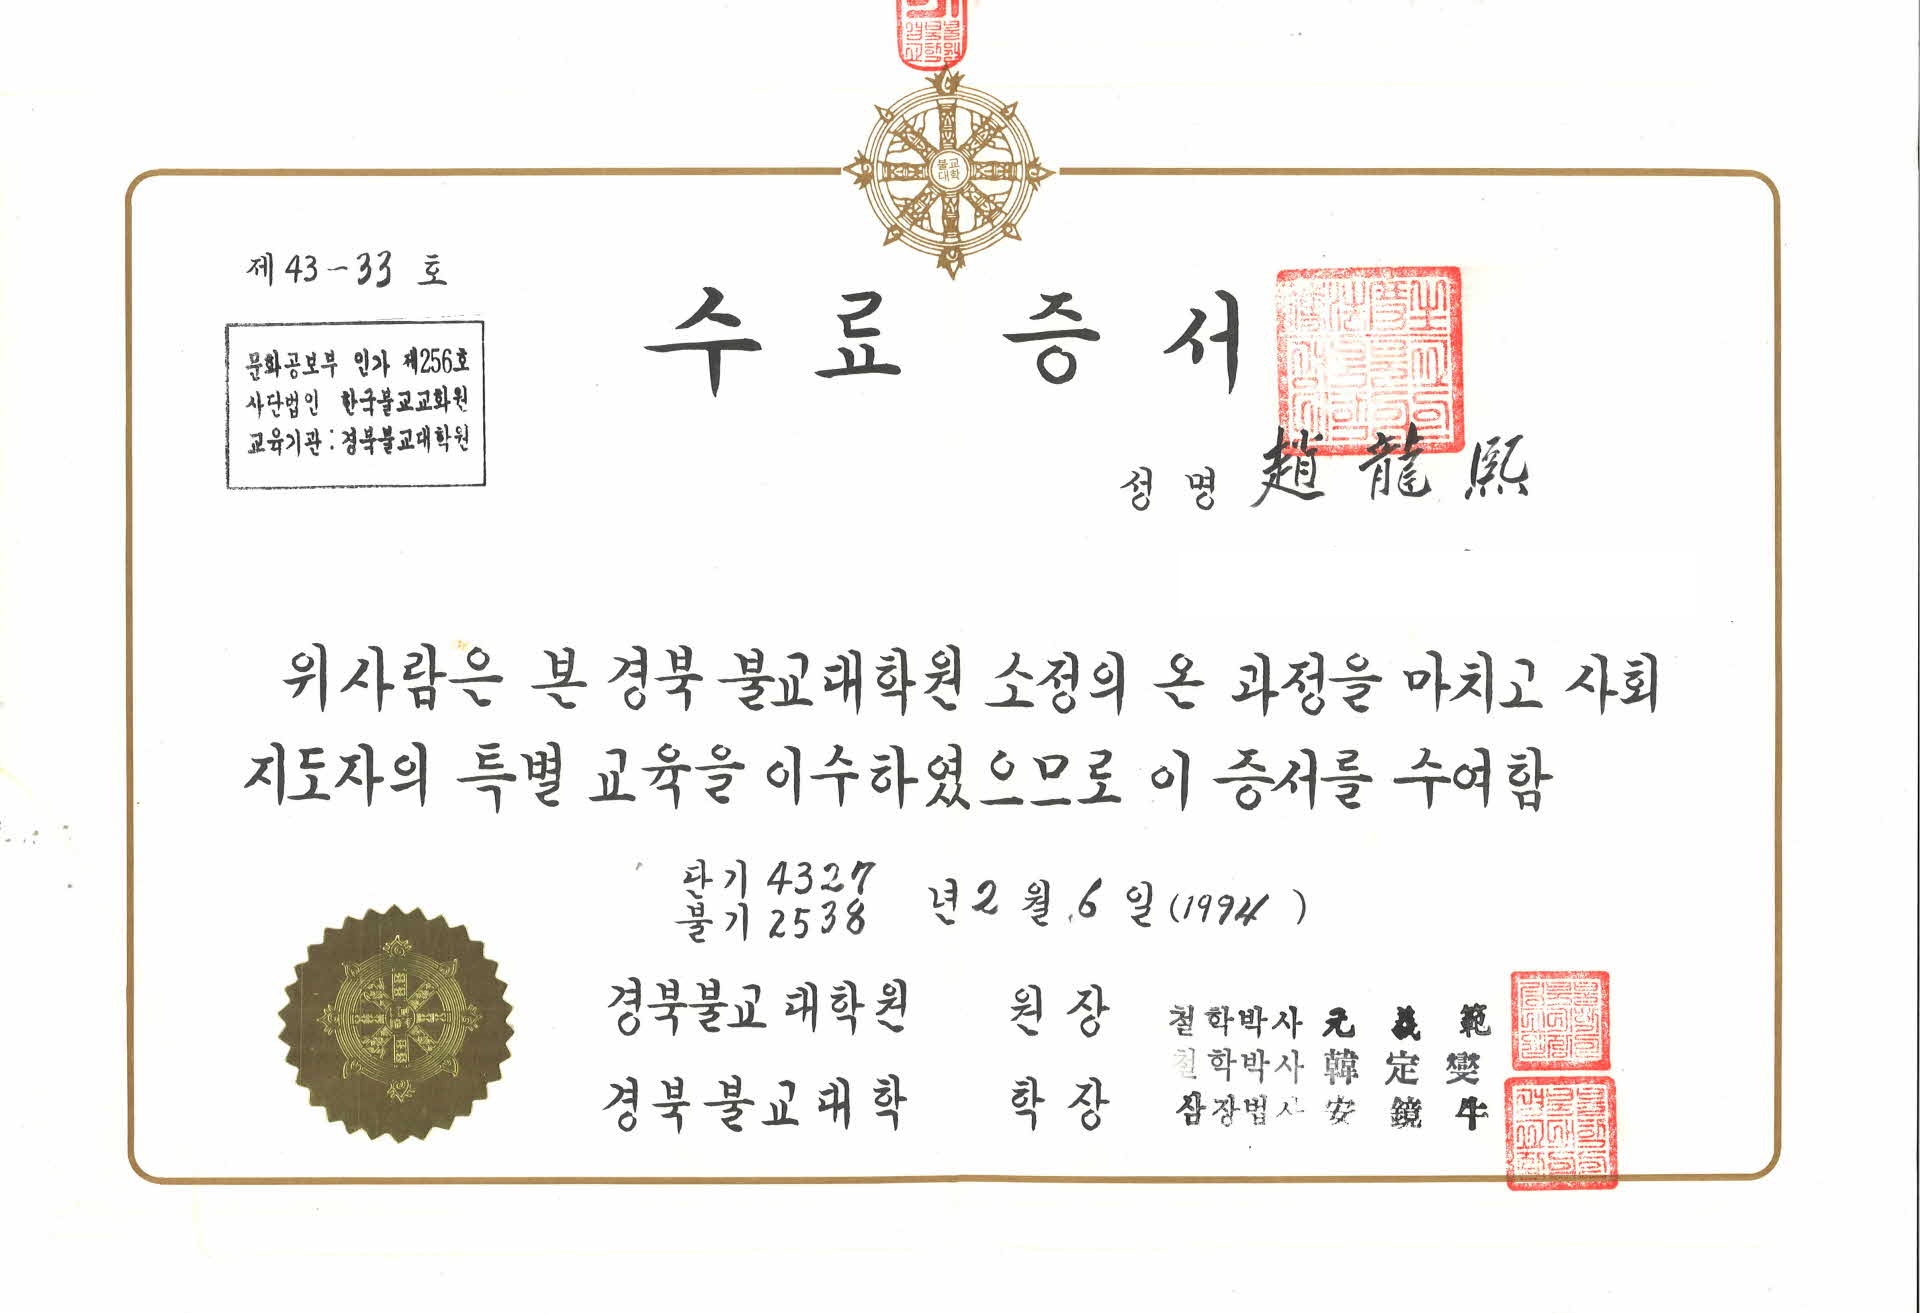 불교
대학
제 43-33 호
수료증서
문화공보부 인가 제256호
사단법인 한국불교교화원
교육기관: 경북불교대학원
성명 趙龍熙
위사람은 본 경북불교대학원 소정의 온 과정을 마치고 사회
지도자의 특별 교육을 이수하였으므로 이 증서를 수여함
단기 4327
불기 2538
년 2 월 6 일 (1994)
경북불교대학원 원장
경북불교대학 학장
철학박사 元義範
철학박사 韓定燮
삼장법사 安鏡牛